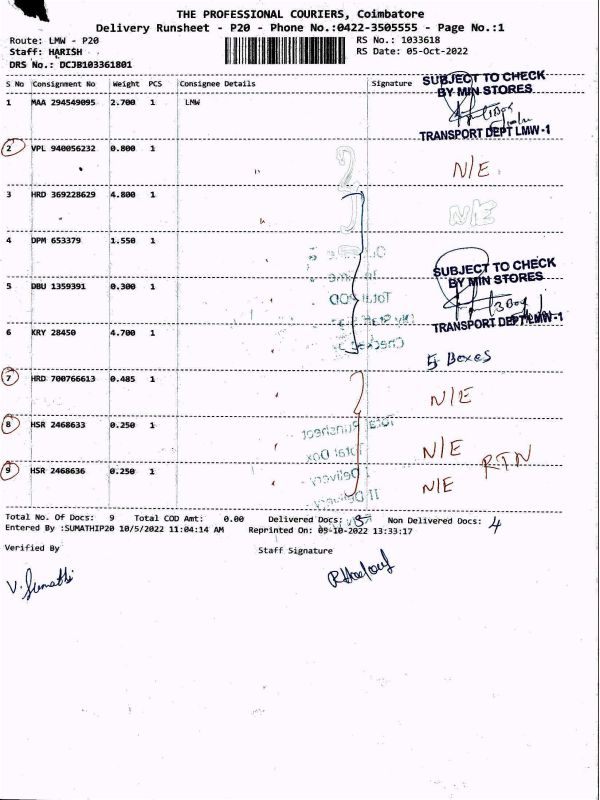 THE PROFESSIONAL COURIERS, Coimbatore
Delivery Runsheet - P20 - Phone No.:0422-3505555 - Page No.:1
Route: LMW - P20
RS No.: 1033618
Staff: HARISH
RS Date: 05-Oct-2022
DRS No.: DCJB103361801
S No Consignment No Weight PCS Consignee Details Signature
SUBJECT TO CHECK
BY MIN STORES
1 MAA 294549095 2.700 1 LMW
TRANSPORT DEPT LMW-1
2 VPL 940056232 0.800 1
N/E
3 HRD 369228629 4.800 1
N/E
4 DPM 653379 1.550 1
SUBJECT TO CHECK
BY MIN STORES
5 DBU 1359391 0.300 1
3 Box
TRANSPORT DEPT LMW-1
6 KRY 28450 4.700 1
5 Boxes
7 HRD 700766613 0.485 1
N/E
8 HSR 2468633 0.250 1
N/E
RTN
9 HSR 2468636 0.250 1
N/E
Total No. Of Docs: 9 Total COD Amt: 0.00 Delivered Docs: Non Delivered Docs: 4
Entered By :SUMATHIP20 10/5/2022 11:04:14 AM Reprinted On: 05-10-2022 13:33:17
Verified By Staff Signature
V. Sumathi